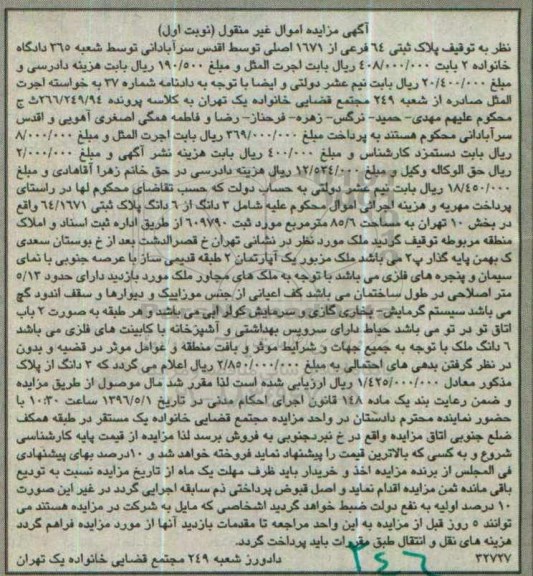 آگهی مزایده اموال غیر منقول (نوبت اول)
نظر به توقیف پلاک ثبتی ٦٤ فرعی از ١٦٧١ اصلی توسط اقدس سرآبادانی توسط شعبه ٣٦٥ دادگاه
خانواده ٢ بابت ٤٠٨/٠٠٠/٠٠٠ ریال بابت اجرت المثل و مبلغ ١٩٠/٥٠٠ ریال بابت هزینه دادرسی و
مبلغ ٢٠/٤٠٠/٠٠٠ ریال بابت نیم عشر دولتی و ایضا با توجه به دادنامه شماره ٣٧ به خواسته اجرت
المثل صادره از شعبه ٢٤٩ مجتمع قضایی خانواده یک تهران به کلاسه پرونده ٢٦٦/٢٤٩/٩٤ث ج
محکوم علیهم مهدی- حمید- نرگس- زهره- فرحناز- رضا و فاطمه همگی اصغری آهویی و اقدس
سرآبادانی محکوم هستند به پرداخت مبلغ ٣٦٩/٠٠٠/٠٠٠ ریال بابت اجرت المثل و مبلغ ٨/٠٠٠/
ریال بابت دستمزد کارشناس و مبلغ ٤٠٠/٠٠٠ ریال بابت هزینه نشر آگهی و مبلغ ٢/٠٠٠/
ریال حق الوکاله وکیل و مبلغ ١٢/٥٣٤/٠ ریال هزینه دادرسی در حق خانم زهرا آقاهادی و مبلغ
١٨/٤٥٠/٠٠٠ ریال بابت نیم عشر دولتی به حساب دولت که حسب تقاضای محکوم لها در راستای
پرداخت مهریه و هزینه اجرائی اموال محکوم علیه شامل ٣ دانگ از ٦ دانگ پلاک ثبتی ٦٤/١٦٧١ واقع
در بخش ١٠ تهران به مساحت ٨٥/٦ مترمربع مورد ثبت ٦٠٩٧٩٠ از طریق اداره ثبت اسناد و املاک
منطقه مربوطه توقیف گردید ملک مورد نظر در نشانی تهران خ قصرالدشت بعد از خ بوستان سعدی
ک بهمن پایه گذار پ٢ می باشد ملک مزبور یک آپارتمان ٢ طبقه قدیمی ساز با عرصه جنوبی با نمای
سیمان و پنجره های فلزی می باشد با توجه به ملک های مجاور ملک مورد بازدید دارای حدود ٥/١٣
متر اصلاحی در طول ساختمان می باشد کف اعیانی از جنس موزاییک و دیوارها و سقف اندود گچ
می باشد سیستم گرمایش- بخاری گازی و سرمایش کولر آبی می باشد و هر طبقه به صورت ٢ باب
اتاق تو در تو می باشد حیاط دارای سرویس بهداشتی و آشپزخانه با کابینت های فلزی می باشد
٦ دانگ ملک با توجه به جمیع جهات و شرایط موثر و بافت منطقه و عوامل موثر در قضیه و بدون
در نظر گرفتن بدهی های احتمالی به مبلغ ٢/٨٥٠/٠٠٠/٠٠٠ ریال اعلام می گردد که ٣ دانگ از پلاک
مذکور معادل ١/٤٢٥/٠٠٠/٠٠٠ ریال ارزیابی شده است لذا مقرر شد مال موصول از طریق مزایده
و ضمن رعایت بند یک ماده ١٤٨ قانون اجرای احکام مدنی در تاریخ ١٣٩٦/٥/١ ساعت ١٠:٣٠ با
حضور نماینده محترم دادستان در واحد مزایده مجتمع قضایی خانواده یک مستقر در طبقه همکف
ضلع جنوبی اتاق مزایده واقع در خ نبردجنوبی به فروش برسد لذا مزایده از قیمت پایه کارشناسی
شروع و به کسی که بالاترین قیمت را پیشنهاد نماید فروخته خواهد شد و ١٠درصد بهای پیشنهادی
فی المجلس از برنده مزایده اخذ و خریدار باید ظرف مهلت یک ماه از تاریخ مزایده نسبت به تودیع
باقی مانده ثمن مزایده اقدام نماید و اصل قبوض پرداختی ذم سابقه اجرایی گردد در غیر این صورت
١٠ درصد اولیه به نفع دولت ضبط خواهد گردید اشخاصی که مایل به شرکت در مزایده هستند می
توانند ٥ روز قبل از مزایده به این واحد مراجعه تا مقدمات بازدید آنها از مورد مزایده فراهم گردد
هزینه های نقل و انتقال طبق مقررات باید پرداخت گردد.
٣٢٧٢٧ دادورز شعبه ٢٤٩ مجتمع قضایی خانواده یک تهران
٢٤٦